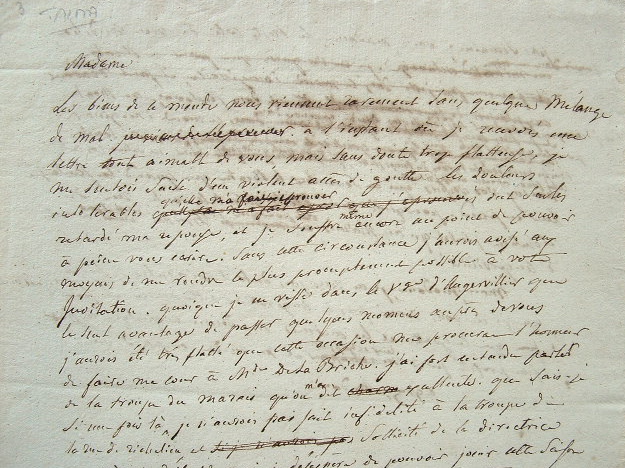 3 TALMA
Madame
Les biens de ce monde nous viennent rarement sans quelque mélange
de mal a l'instant où je recevois une
lettre tout aimable de vous, mais sans doute trop flatteuse, je
me sentois saisi d'un violent accès de goutte les douleurs
intolerables qu'elle m'a fait eprouver ont seules
retardé ma reponse, et je souffre encore même au point de pouvoir
à peine vous ecrire : sans cette circonstance j'aurois avisé aux
moyens de me rendre le plus promptement possible à votre
Invitation. quoique je ne visse dans le d'Angervillier que
le seul avantage de passer quelques momens auprès de vous
j'aurois été très flatté que cette occasion me procurat l'honneur
de faire ma cour à Mde De la Briche. j'ai fort entendu parler
de la troupe du marais qu'on m'a dit excellente. que sais-je
si une fois là, je n'aurois pas fait infidélité à la troupe de
la rue de richelieu et sollicité de la directrice
de pouvoir jouer cette saison